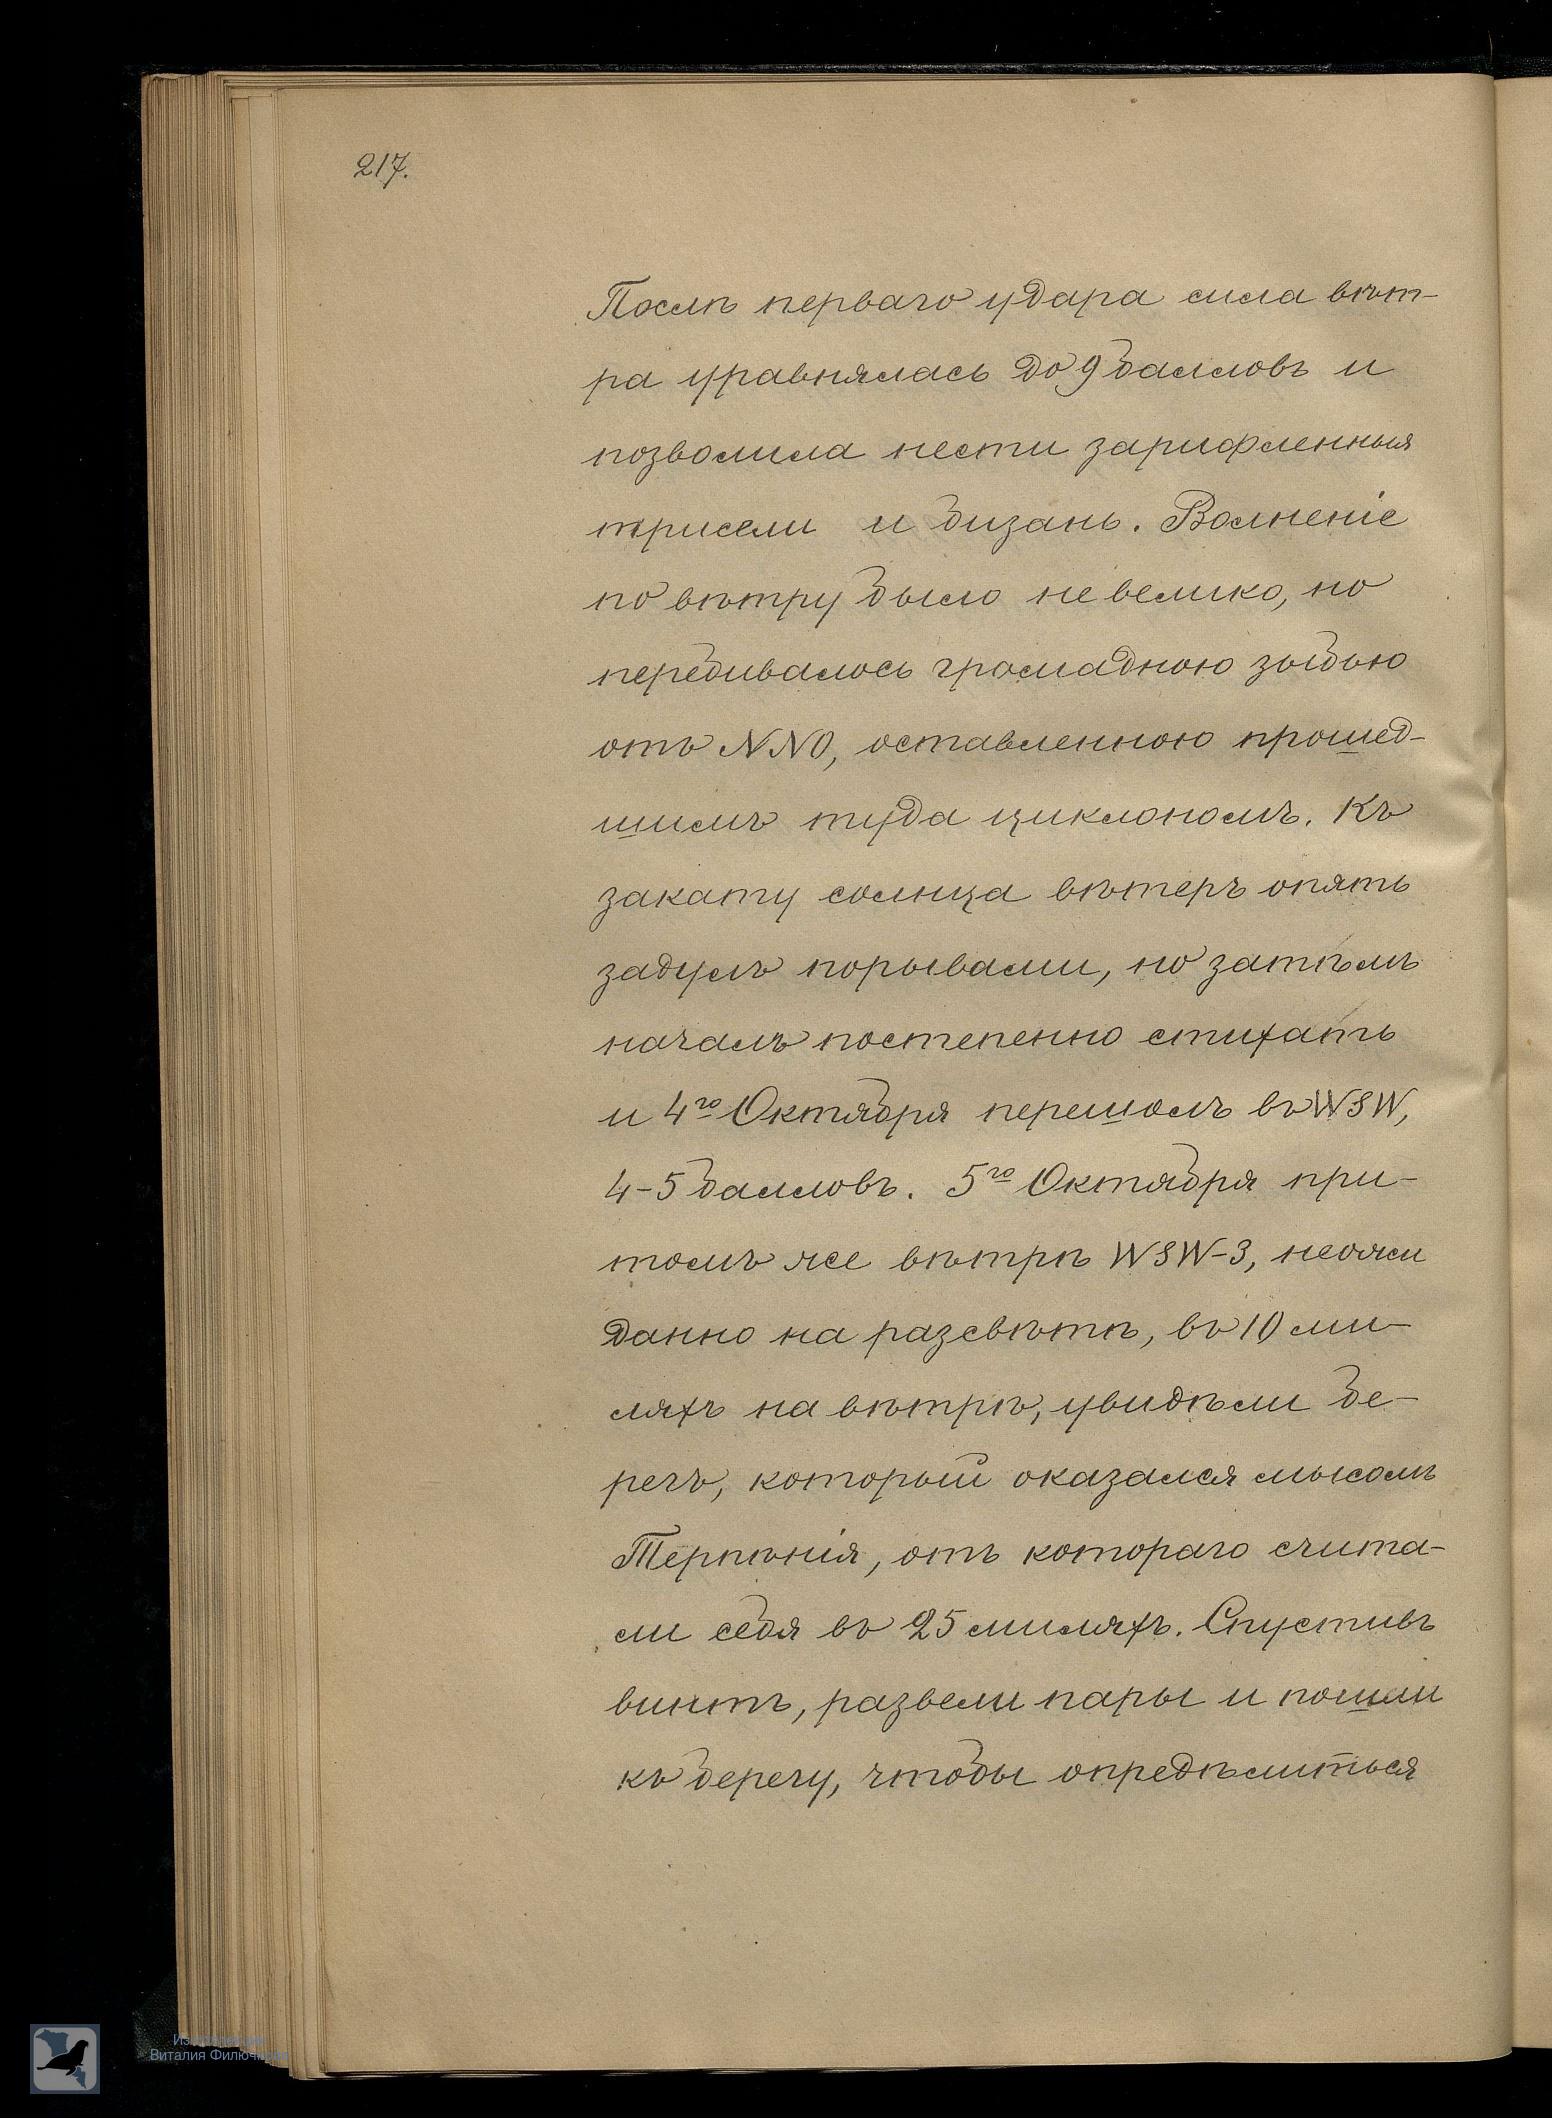 217.
Послѣ перваго удара сила вѣт-
ра уравнялась до 9 балловъ и
позволила нести зарифленныя
трисели и бизань. Волненіе
по вѣтру было не велико, но
перебивалось громадною зыбью
отъ NNO, оставленною прошед-
шимъ туда циклономъ. Къ
закату солнца вѣтеръ опять
задулъ порывами, но затѣмъ
началъ постепенно стихать
и 4го Октября перешолъ въ WSW,
4-5 балловъ. 5го Октября при-
томъ же вѣтрѣ WSW-3, неожи
данно на разсвѣтѣ, въ 10 ми-
ляхъ на вѣтрѣ, увидѣли бе-
регъ, который оказался мысомъ
Терпѣнія, отъ котораго счита-
ли себя въ 25 миляхъ. Спустивъ
винтъ, развели пары и пошли
къ берегу, чтобы опредѣлиться
Виталия Филючкова